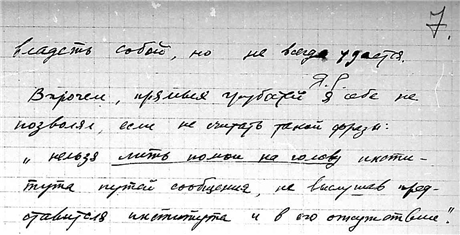 7.
владеть собой, но не всегда удается.
Я.Г.
Впрочем, прямых грубостей я себе не
позволял, если не считать такой фразы:
„нельзя лить помои на голову инсти-
тута путей сообщения, не выслушав пред-
ставителя института и в его отсутствие".